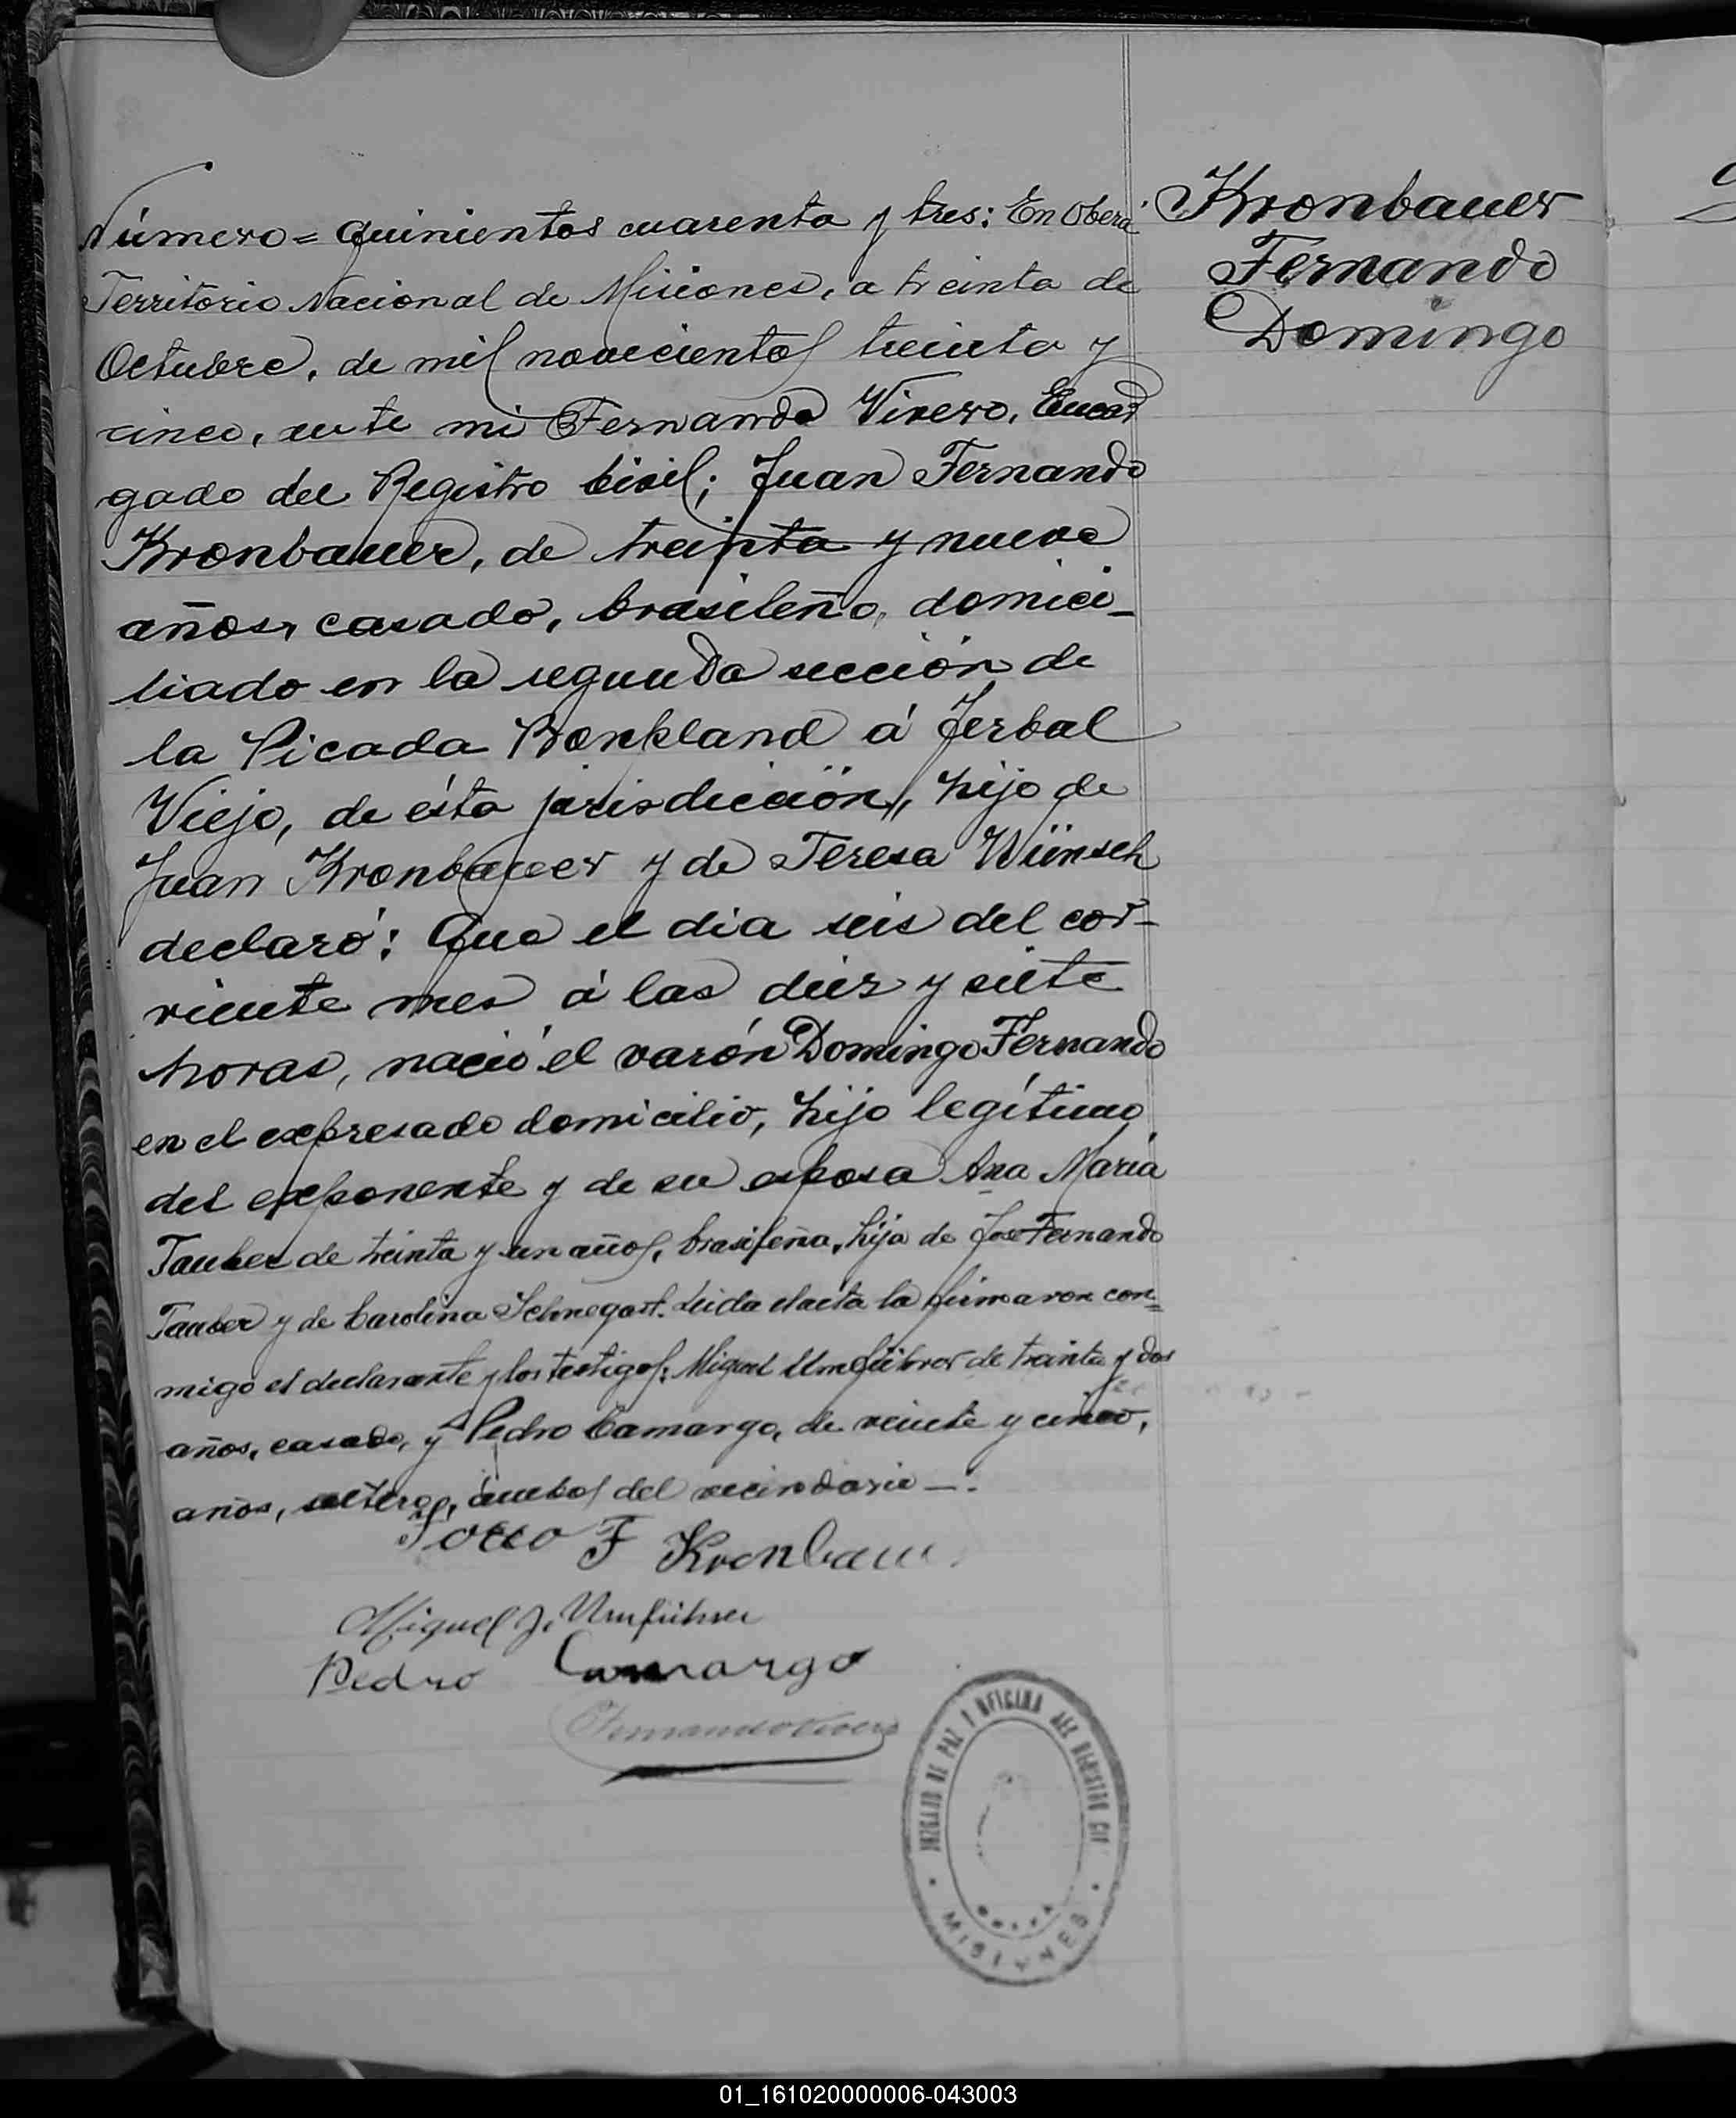 Número = Quinientos cuarenta y tres: En Oberá
Territorio Nacional de Misiones, a treinta de
Octubre, de mil novecientos treinta y
cinco, ante mi Fernando Vivero, Encar
gado del Registro Civil; Juan Fernando
Kronbauer, de treinta y nueve
años, casado, brasileño, domici-
liado en la segunda sección de
la Picada Bonpland á Yerbal
Viejo, de ésta jurisdicción, hijo de
Juan Kronbauer y de Teresa Wünsch
declaró: Que el dia seis del cor-
riente mes á las diez y siete
horas, nació el varón Domingo Fernando
en el expresado domicilio, hijo legítimo
del exponente y de su esposa Ana María
Tauber de treinta y un años, brasileña, hija de José Fernando
Tauber y de Carolina Schnegast. Leida el acta la firmaron con=
migo el declarante y los testigos: Miguel Umführer de treinta y dos
años, casado, y Pedro Camargo, de veinte y cinco,
años, soltero, ambos del vecindario —.
F Kronbauer
Miguel J. Umführer
Pedro Camargo
Fernando Vivero
Kronbauer
Fernando
Domingo
JUZGADO DE PAZ Y OFICINA DEL REGISTRO CIV
MISIONES
01_161020000006-043003